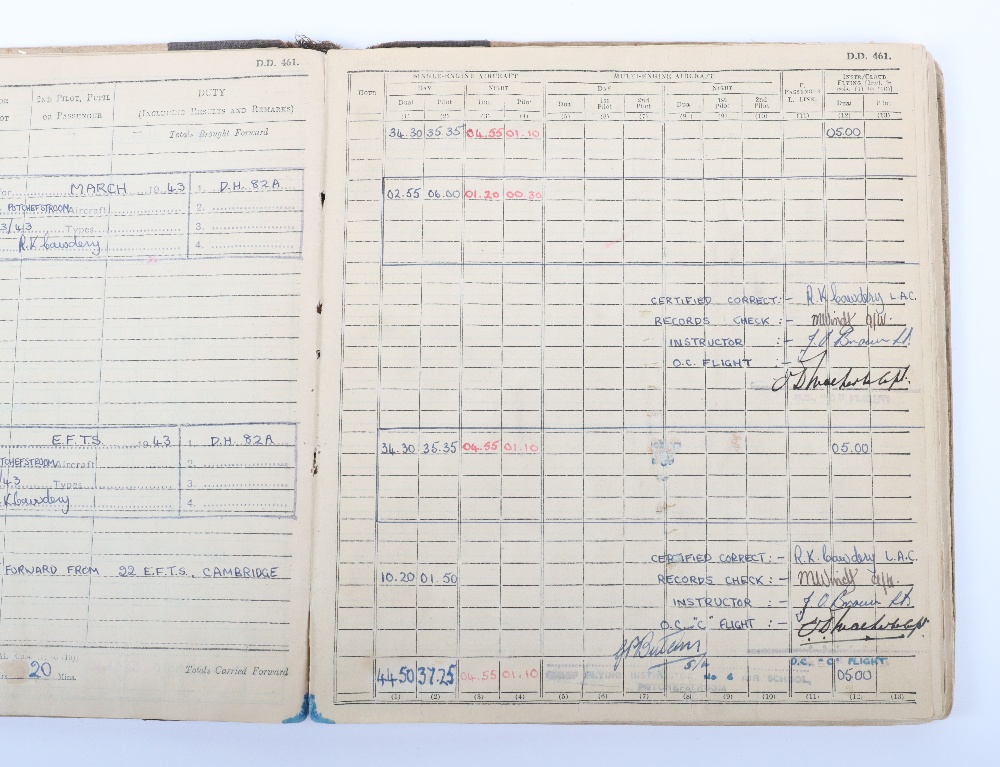 D.D. 461.
2ND PILOT, PUPIL OR PASSENGER
DUTY
(INCLUDING RESULTS AND REMARKS)
Totals Brought Forward
MARCH 19 43 1. D.H. 82A
POTCHEFSTROOM Aircraft 2.
3/43 Types 3.
R.K Cawdery 4.
E.F.T.S. 19 43 1. D.H. 82A
TCHEFSTROOM Aircraft 2.
/43 Types 3.
K Cawdery 4.
FORWARD FROM 22 E.F.T.S., CAMBRIDGE
20 Mins. Totals Carried Forward
D.D. 461.
SINGLE-ENGINE AIRCRAFT MULTI-ENGINE AIRCRAFT INSTR/CLOUD
DAY NIGHT DAY NIGHT PASSENGER FLYING
Dual Pilot Dual Pilot Dual 1st Pilot 2nd Pilot Dual 1st Pilot 2nd Pilot Dual Pilot
(1) (2) (3) (4) (5) (6) (7) (8) (9) (10) (11) (12) (13)
34.30 35.35 04.55 01.10 05.00
02.55 06.00 01.20 00.30
CERTIFIED CORRECT:- R.K Cawdery L.A.C.
RECORDS CHECK :-
INSTRUCTOR :- J.O. Brown Lt.
O.C. FLIGHT :-
34.30 35.35 04.55 01.10 05.00
CERTIFIED CORRECT:- R.K. Cawdery L.A.C.
10.20 01.50 RECORDS CHECK :-
INSTRUCTOR :- J.O. Brown Lt.
O.C. "C" FLIGHT :-
O.C. "C" FLIGHT
44.50 37.25 04.55 01.10 CHIEF FLYING INSTRUCTOR No 6 AIR SCHOOL, 05.00
POTCHEFSTROOM
(1) (2) (3) (4) (5) (6) (7) (8) (9) (10) (11) (12) (13)